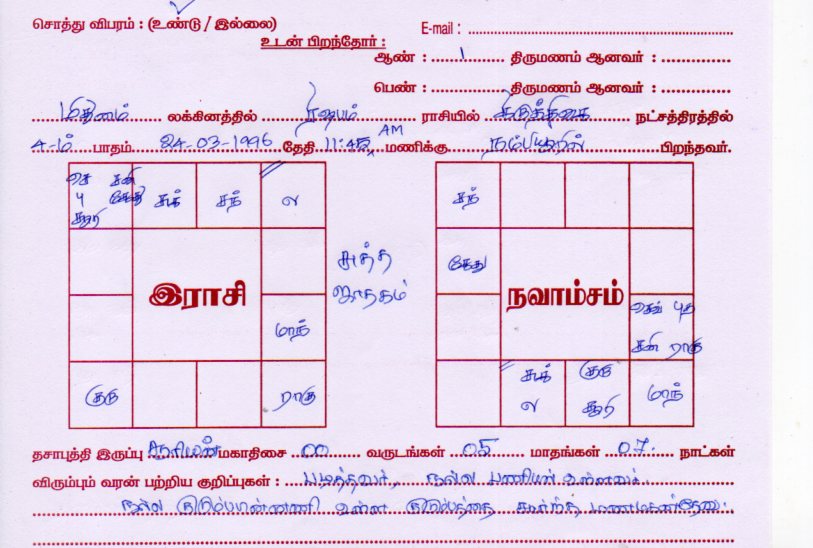 சொத்து விபரம் : (உண்டு / இல்லை) E-mail :
உடன் பிறந்தோர் :
ஆண் : 1 திருமணம் ஆனவர் :
பெண் : திருமணம் ஆனவர் :
மிதுனம் லக்கினத்தில் ரிஷபம் ராசியில் கிருத்திகை நட்சத்திரத்தில்
4-ம் பாதம் 24-03-1996 தேதி 11:45 AM மணிக்கு நம்பியூரில் பிறந்தவர்.
செ சனி
பு கேது
சூரி
சுக்
சந்
ல
மாந்
குரு
ராகு
இராசி
சுத்த
ஜாதகம்
சந்
கேது
செவ் புத
சனி ராகு
சுக்
ல
குரு
சூரி
மாந்
நவாம்சம்
தசாபுத்தி இருப்பு சூரியன் மகாதிசை 00 வருடங்கள் 05 மாதங்கள் 07 நாட்கள்
விரும்பும் வரன் பற்றிய குறிப்புகள் : படித்தவர், நல்ல பணியில் உள்ளவர்.
நல்ல குடும்பபின்னணி உள்ள குடும்பத்தை சார்ந்த மணமகன் தேவை.